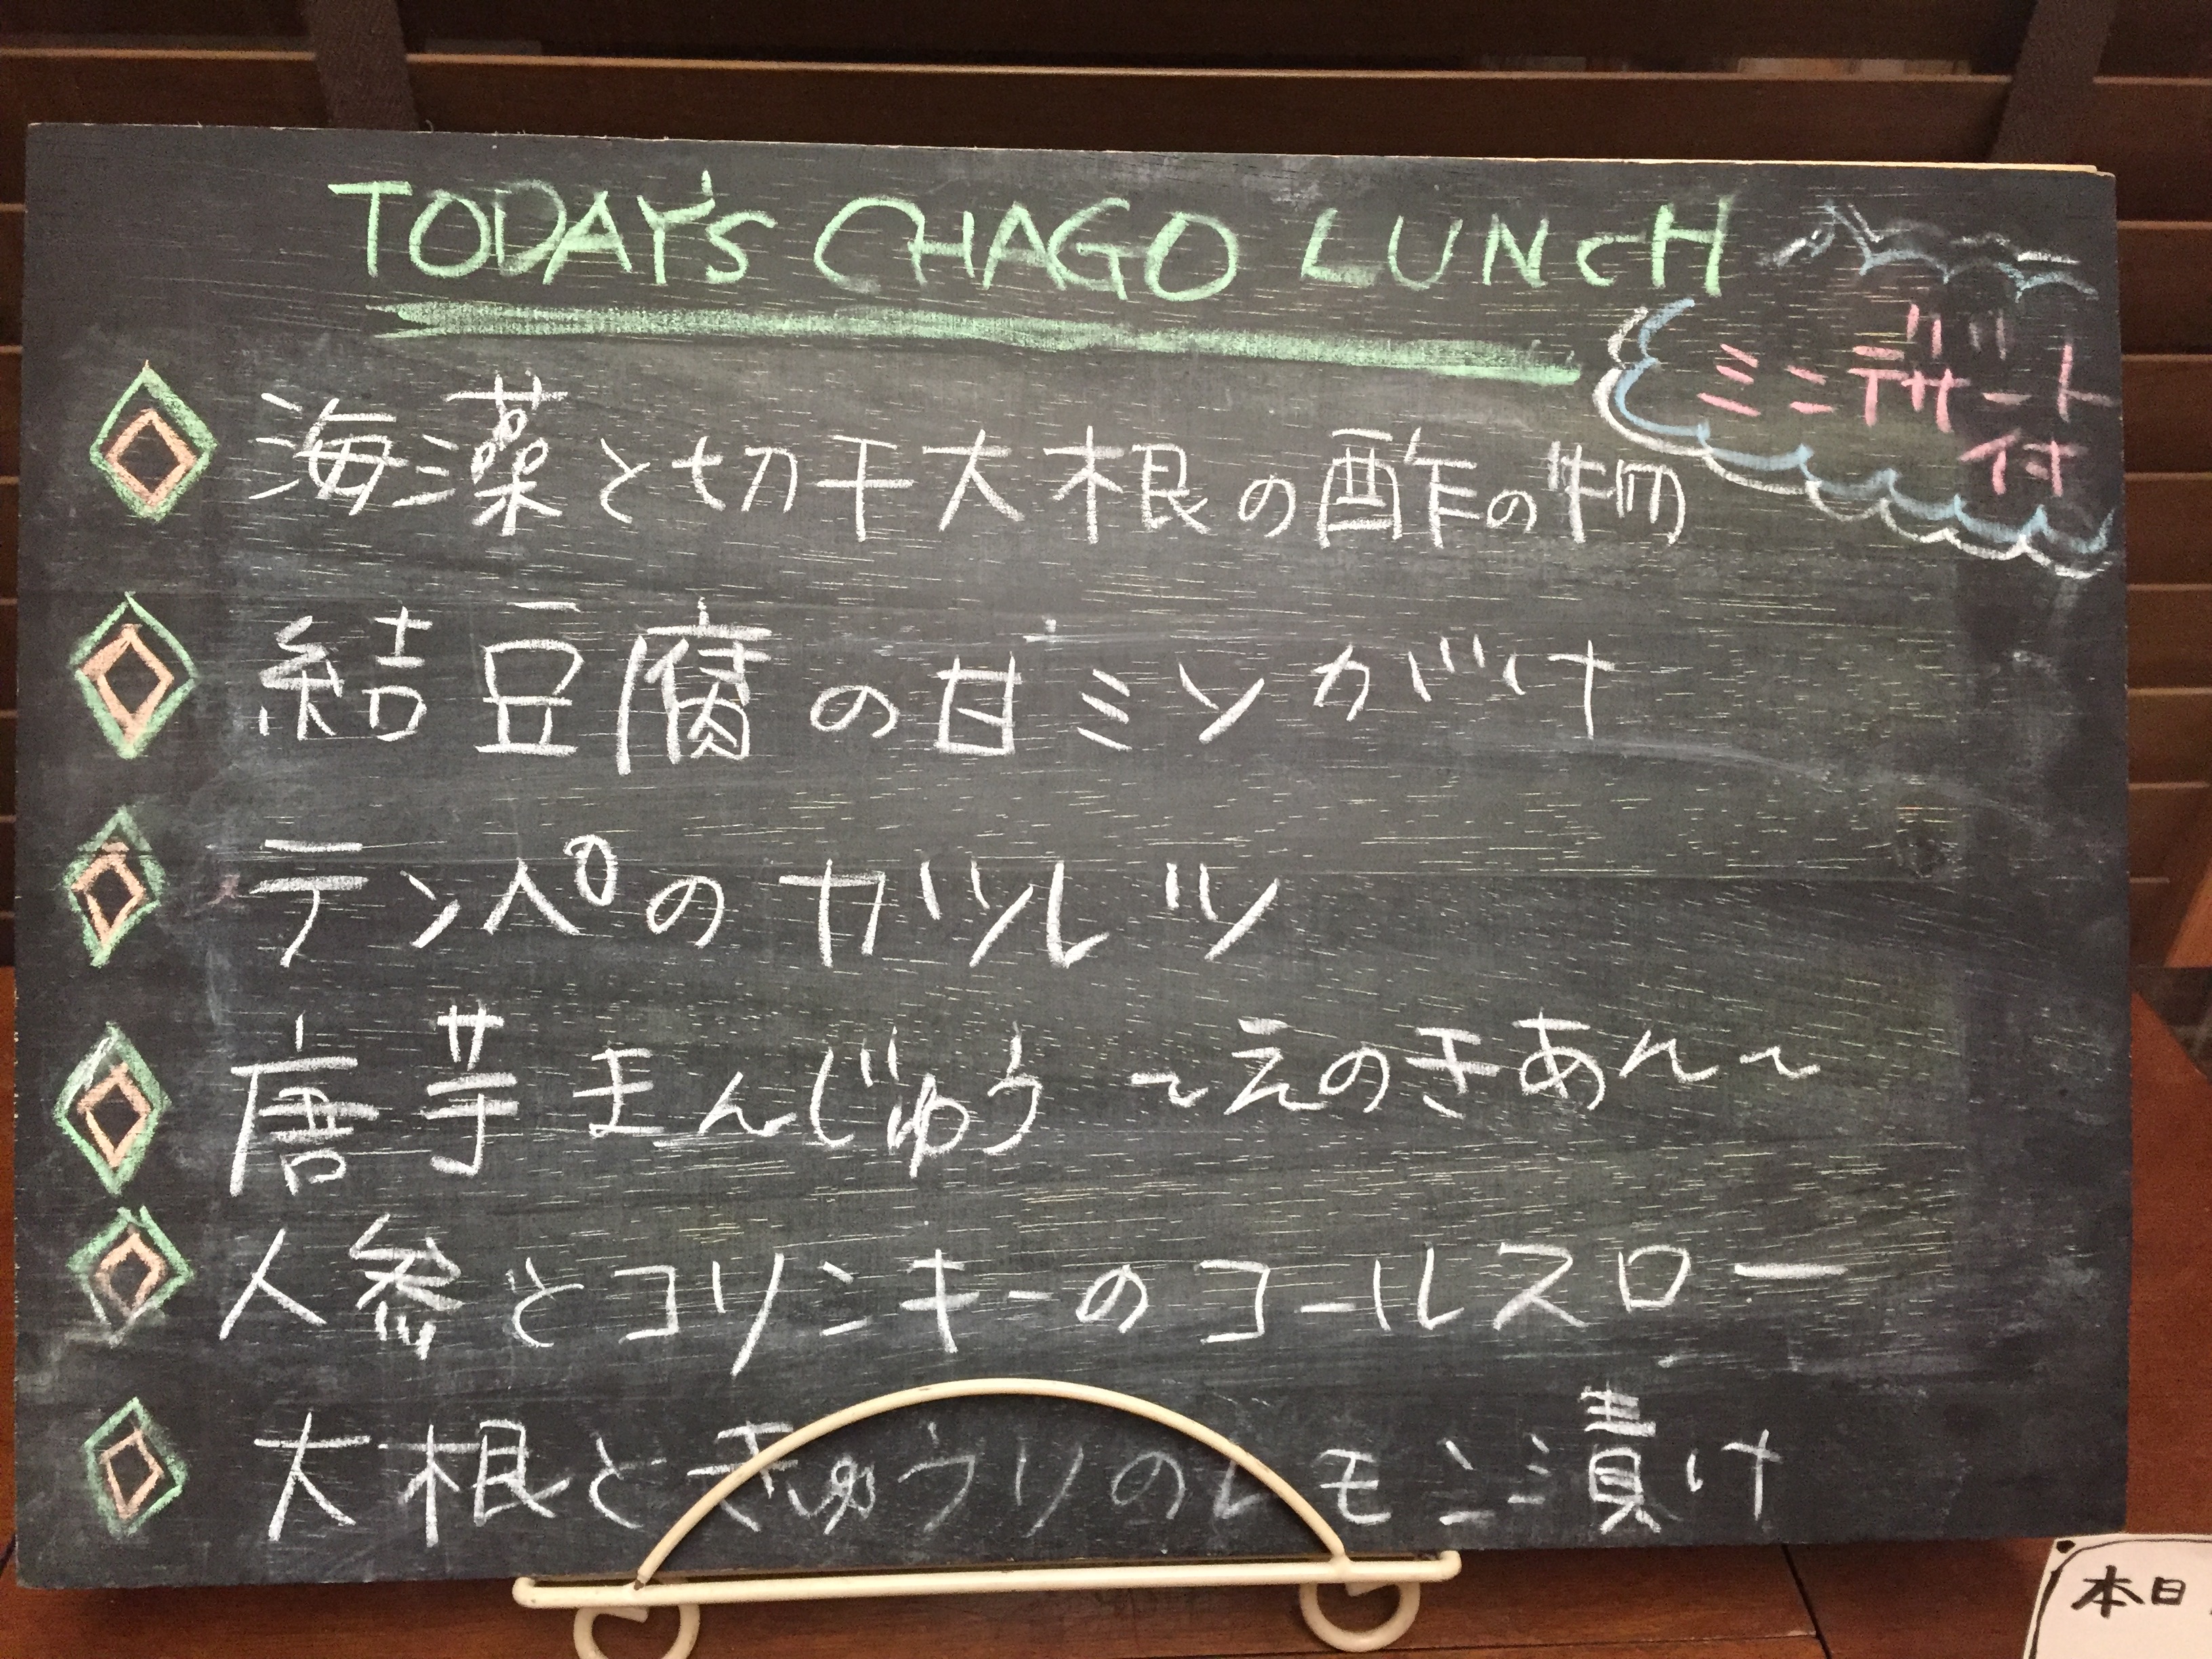 TODAY'S CHAGO LUNCH
ミニデザート
付
海藻と切干大根の酢の物
結豆腐の甘ミソがけ
テンペのガツレツ
唐芋まんじゅう ~えのきあん~
人参とコリンキーのコールスロー
大根ときゅうりのレモン漬け
本日